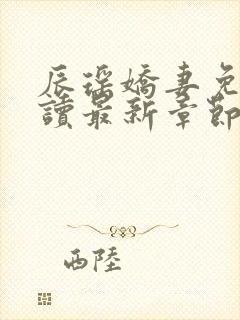 辰瑤嬌妻免
讀最新章節
西陸